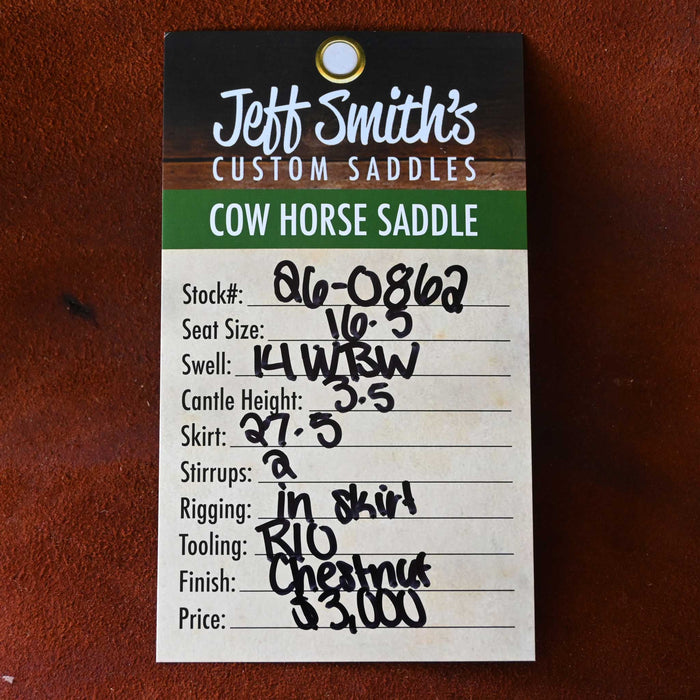 Jeff Smith's
CUSTOM SADDLES
COW HORSE SADDLE
Stock#: 26-0862
Seat Size: 16.5
Swell: 14 WBW
Cantle Height: 3.5
Skirt: 27.5
Stirrups: 2
Rigging: in skirt
Tooling: RIO
Finish: Chestnut
Price: $3,000